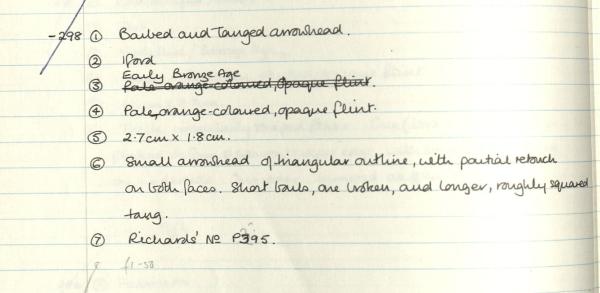 -298 ① Barbed and Tanged arrowhead.
② Iford
Early Bronze Age
③ Pale orange-coloured, opaque flint.
④ Pale, orange-coloured, opaque flint.
⑤ 2.7cm x 1.8cm.
⑥ Small arrowhead of triangular outline, with partial retouch
on both faces. Short barbs, one broken, and longer, roughly squared
tang.
⑦ Richards' No P395.
8 f1-50